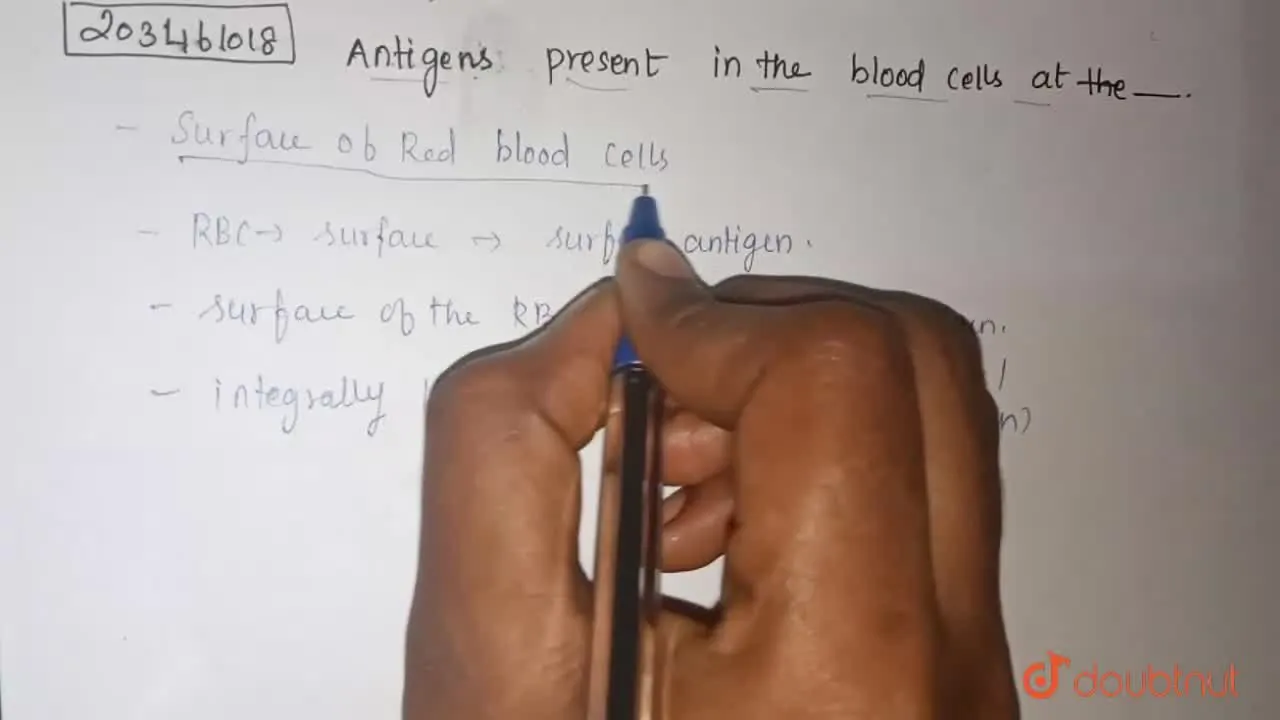 203461018
Antigens present in the blood cells at the ___.
- Surface ob Red blood cells
- RBC → surface → surf antigen.
- surface of the RB n.
- integrally n)
doubtnut